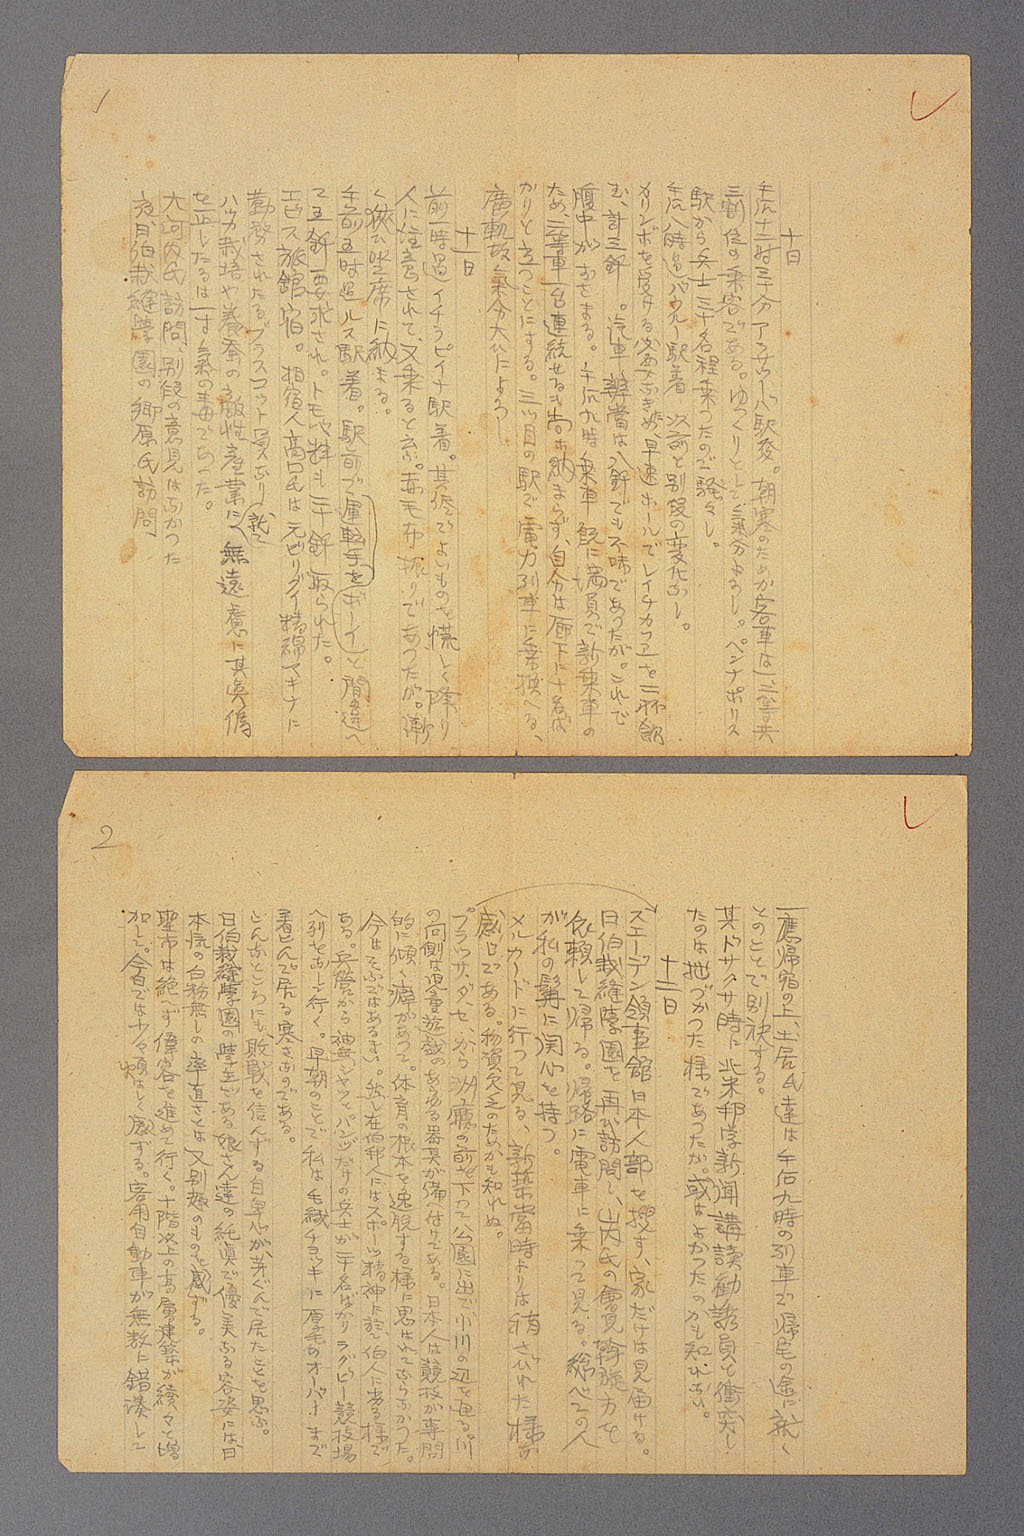 1
十日
午后十二時三十分アンサツーバ駅発。朝寒のためか客車は一二三等共
三割位の乗客である。ゆつくりとして気分よろし。ペンナポリス
駅から兵士三十名程乗つたので騒々し。
午后八時過バウルー駅着 以前と別段の変化なし。
カリンボを受ける必要なきため早速ホールでレイチカフェーを二杯飲
む、計三釬。汽車辨當は八釬でも不味であつたが。これで
腹中がおさまる。午后九時乗車 既に満員で新乗車の
ため、二等車一台連続せるも尚ホ納まらず、自分は廊下に十名ば
かりと立つことにする。三ツ目の駅で電力列車に乗換へる、
廣軌故気分大いによろし
十一日
前一時過イチラピイナ駅着。其侭でよいものを慌しく降り
人に注意されて、又乗ると云ふ。赤毛布振りであつたが。漸
く狭い坐席に納まる。
午前五時過ルス駅着。駅前で運転手をボーイと間違へ
て五釬要求され。トモベ料も二千釬取られた。
エビス旅館宿。相宿人高口氏は元ビリグイ精綿マキナに
勤務されたるブラスコット員なり
ハッカ栽培や養蚕の敵性産業に就て無遠慮に其眞偽
を正したるは一寸気の毒であつた。
大河内氏訪問 別段の意見はなかつた
夜日伯裁縫学園の郷原氏訪問
2
一應帰宿の上、土居氏達は午后九時の列車で帰宅の途に就く
とのことで別袂する。
其ドサクサ時に北米邦字新聞講読勧誘員と衝突し
たのは拙づかつた様であつたか。或はよかつたのかも知れない。
十二日
スエーデン領事館日本人部を捜す、家だけは見届ける。
日伯裁縫学園を再び訪問し、山内氏の會見斡旋方を
依頼して帰る。帰路に電車に乗つて見る。総べての人
が私の髯に関心を持つ。
メルカードに行つて見る、新築當時よりは稍さびれた様な
感じである。物資欠乏のためかも知れぬ。
プラッサ、ダ、セ、から洲廳の前を下つて公園に出で小川の辺を通る。川
の向側は児童遊戯のあらゆる器具が備へ付けてある。日本人は競技が専門
的に傾く癖があつて。体育の根本を逸脱する様に思はれてならなかつた。
今はそうではあるまい。然し在伯邦人にはスポーツ精神に於て伯人に劣る様で
ある。兵営から袖無シャツとパンツだけの兵士が二千名ばかりラグビー競技場
へ列をなして行く。早朝のことで私は毛織チョッキに原毛のオーバーまで
着込んで居る寒さなのである。
こんなところにも敗戦を信んずる自卑心が芽ぐんで居たことを思ふ。
日伯裁縫学園の学生である娘さん達の純真で優美なる容姿には日
本流の白粉無しの率直さとは又別趣のものを感ずる。
聖市は絶へず偉容を進めて行く。十階以上の高層建築が続々と増
加して。今日では少々煩はしく感ずる。客用自動車が無数に錯湊して